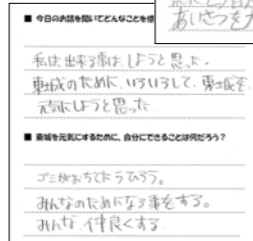 あいさつを
■ 今日のお話を聞いてどんなことを感
私は、出来る事は、しようと思った。
東城のために、いろいろして、東城を
元気にしようと思った
■ 東城を元気にするために、自分にできることは何だろう?
ゴミがおちてたらひろう。
みんなのためになる事をする。
みんな、仲良くする